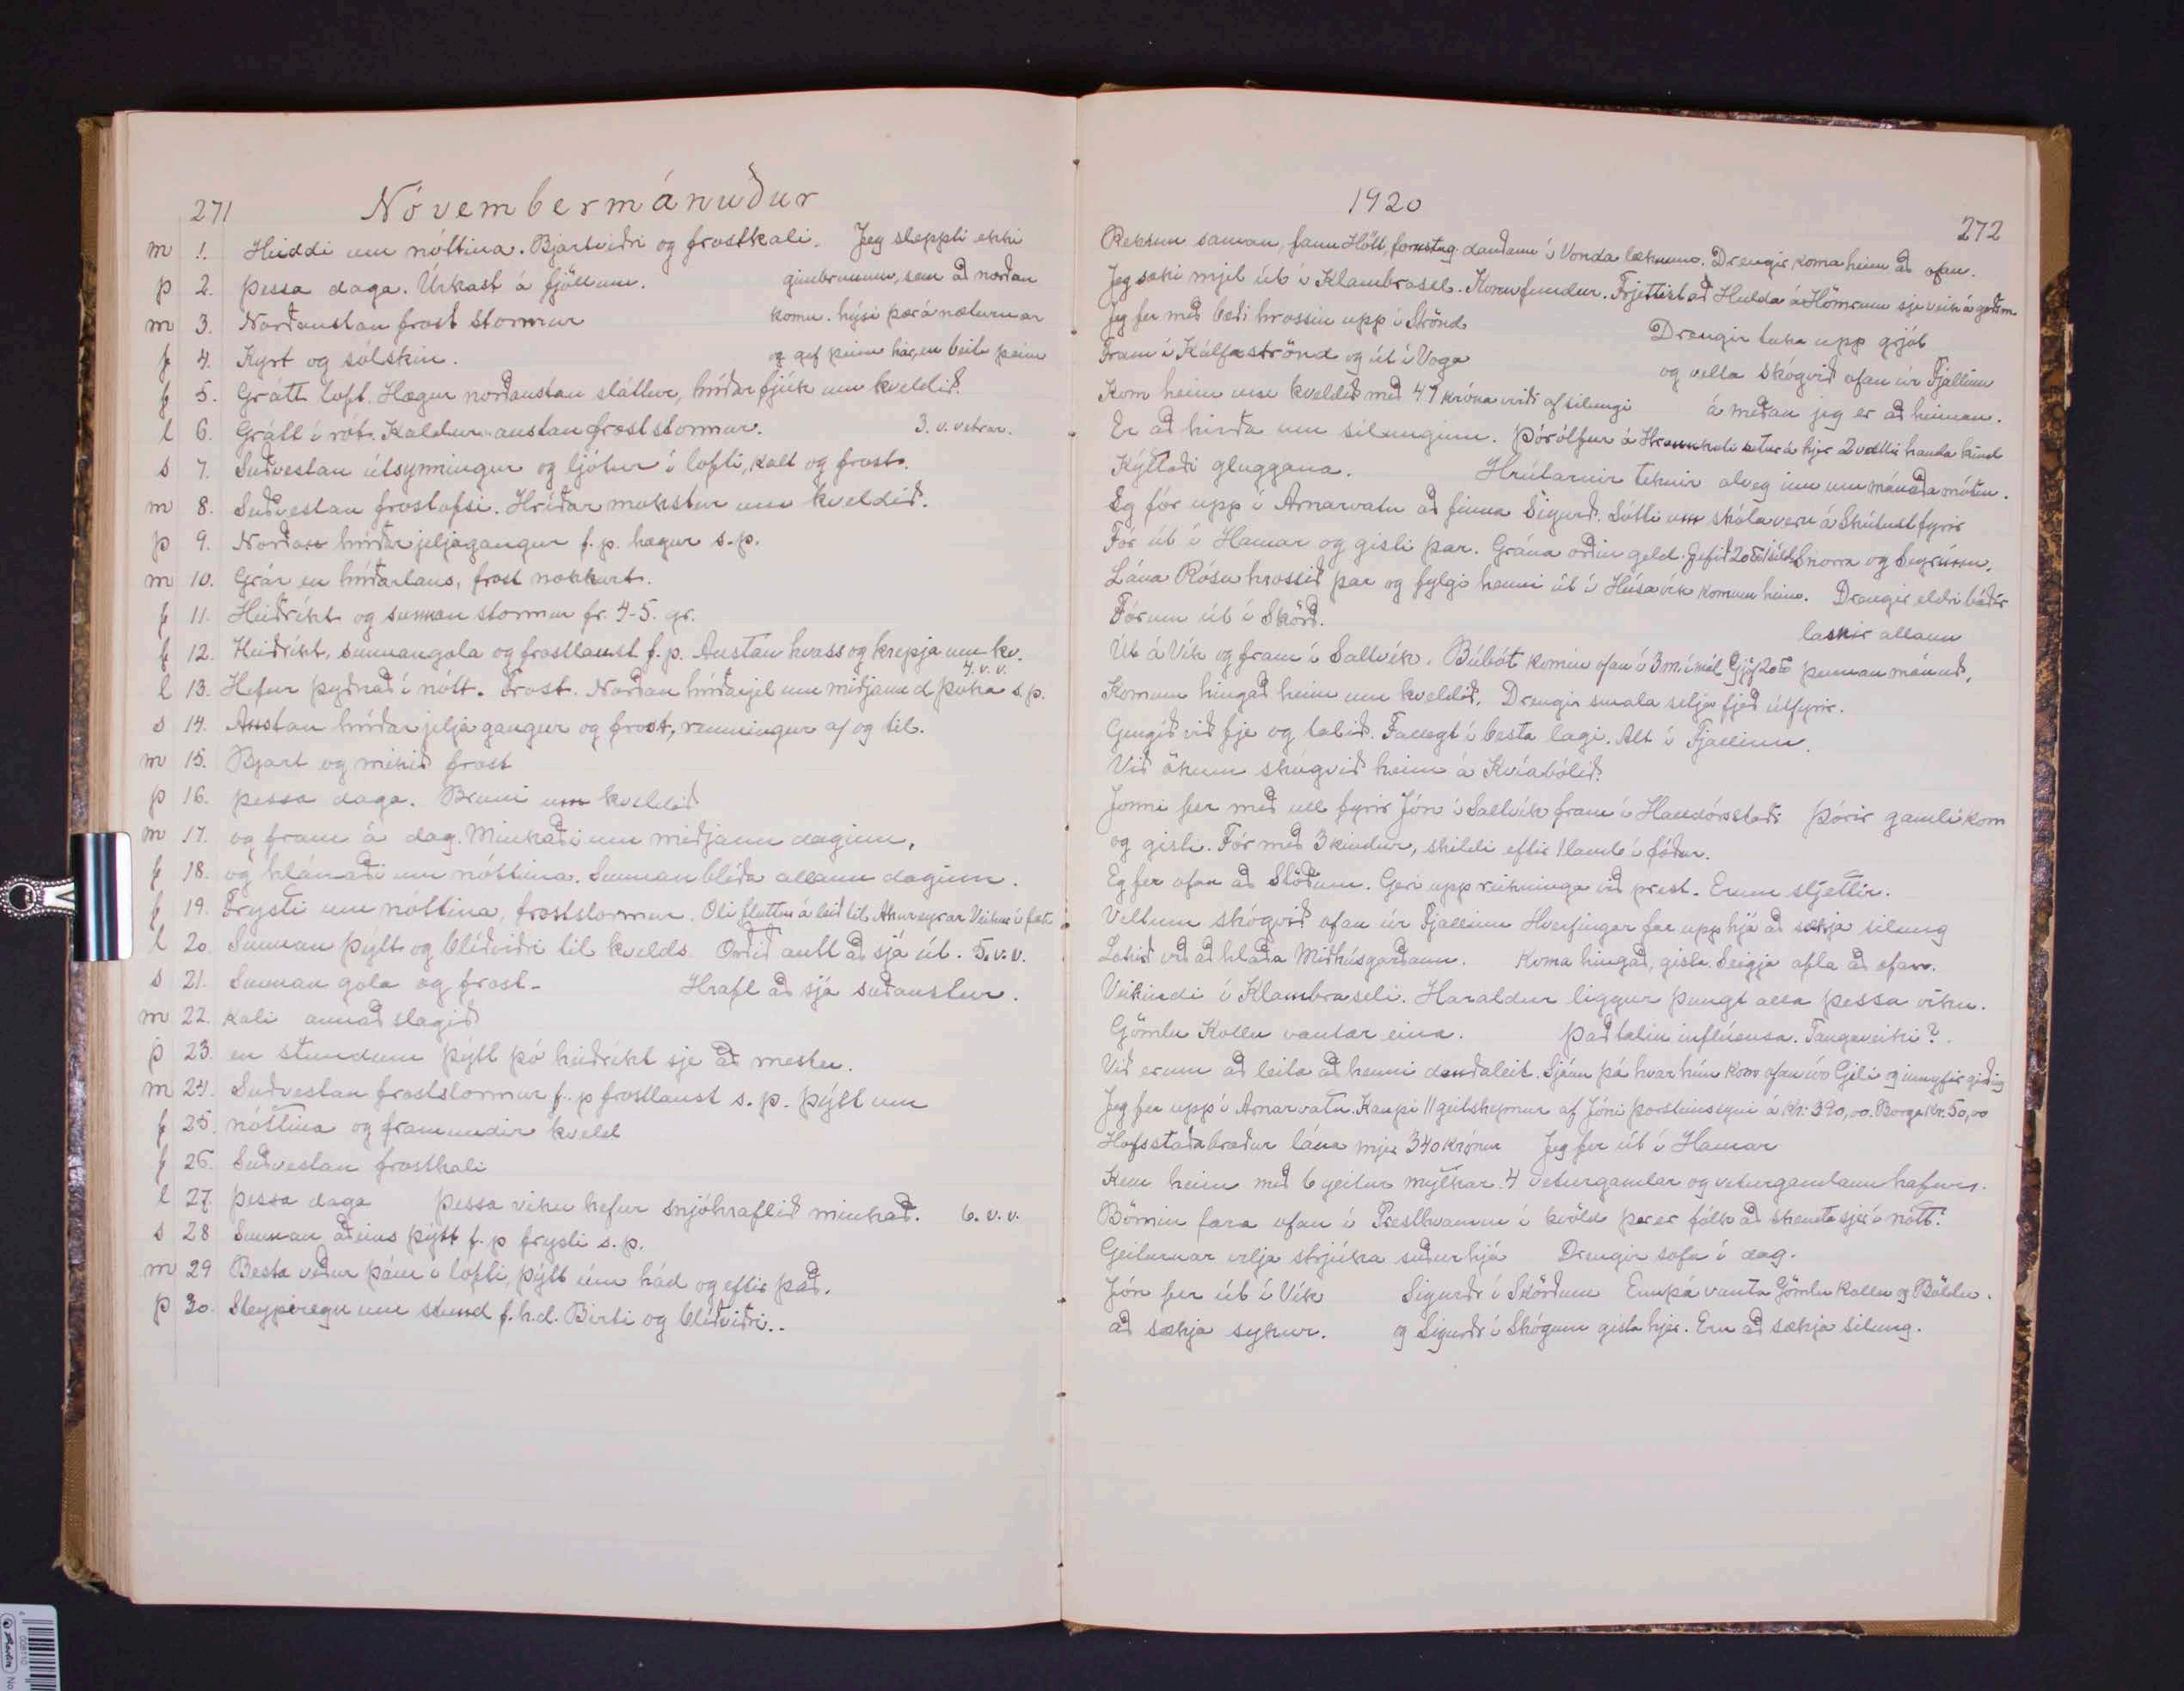 271 Nóvembermánuður
m 1. Heiddi um nóttina. Bjartviðri og frostkali. Jeg sleppti ekki
þ 2. þessa daga. Úrkast á fjöllum. gimbrunum, sem að norðan
m 3. Norðaustan froststormur komu. hýsi þær á næturnar
f 4. Kyrt og sólskin. og gef þeim hár, en beiti þeim
f 5. Grátt loft. Hægur norðaustan sláttur, hríðarfjúk um kveldið.
l 6. Grátt í rót. Kaldur austan froststormur. 3. v. vetrar.
s 7. Suðvestan útsynningur og ljótur í lofti, kalt og frost.
m 8. Suðvestan frostofsi. Hríðar mokstur um kveldið.
þ 9. Norðan hríðarjeljagangur f.p. hægur s.p.
m 10. Grár en hríðarlaus, frost nokkurt.
f 11. Heiðríkt og sunnan stormur fr. 4-5. gr.
f 12. Heiðríkt, sunnangola og frostlaust f.p. Austan hvass og krepja um kv.
4. v. v.
l 13. Hefur þyðnað í nótt. Frost. Norðan hríðarjel um miðjann d þoka s.p.
s 14. Austan hríðarjeljagangur og frost, renningur af og til.
m 15. Bjart og mikið frost
þ 16. þessa daga. Bruni um kveldið
m 17. og fram á dag. Minkaði um miðjann daginn,
f 18. og hlánaði um nóttina. Sunnan blíða allann daginn.
f 19. Frysti um nóttina, froststormur. Oli fluttur á leið til Akureyrar Veikur í fæti
l 20. Sunnan þýtt og blíðviðri til kvelds Orðið autt að sjá út. 5. v. v.
s 21. Sunnan gola og frost- Hrafl að sjá suðaustur.
m 22. kali annað slagið
þ 23. en stundum þýtt þó heiðríkt sje að mestu.
m 24. Suðvestan froststormur f.p frostlaust s.p. þýtt um
f 25. nóttina og framundir kveld
f 26. Suðvestan frostkali
l 27. þessa daga þessa viku hefur snjóhraflið minkað. 6. v. v.
s 28 Sunnan aðeins þýtt f.p frysti s.p.
m 29 Besta veður þám í lofti, þýtt um hád og eftir það.
þ 30. Steypiregn um stund f.h.d. Birti og blíðviðri..
1920 272
Rekum saman, fann Hött, forustug dauðann í Vonda læknum. Drengir koma heim að ofan.
Jeg sæki mjel út í Klambrasel. Kornfundur. Frjettist að Hulda á Hömrum sje veik á geðsm.
Jeg fer með bæði hrossin upp í Strönd Drengir taka upp grjót
Fram í Kálfaströnd og út í Voga og velta skógvið ofan úr Fjallinu
Kom heim um kveldið með 47 króna virði af silungi á meðan jeg er að heiman.
Er að hirða um silunginn. Þórólfur á hjer 2 vættir handa kind
Kýttaði gluggana. Hrútarnir teknir alveg inn um mánaðamótin.
Eg fór upp í Arnarvatn að finna Sigurð. Sótti um skólaveru á Skútust fyrir
Fór út í Hamar og gisti þar. Grána orðin geld. Snorra og Sigrúnu.
Lána Rósu hrossið þar og fylgi henni út í Húsavík komum heim. Drengir eldri báðir
Fórum út í Skörð. lasnir allann
Út á Vík og fram í Saltvík. Búbót komin ofan í 3 m. í mál þennan mánuð.
Komum hingað heim um kveldið. Drengir smala selja fjeð útfyrir.
Gengið við fje og talið. Fallegt í besta lagi. Alt í Fjallinu.
Við ökum skógvið heim á Kvíabólið.
Jonni fer með ull fyrir Jón í Saltvík fram í Halldórsstaði Þórir gamli kom
og gisti. Fór með 3 kindur, skildi eftir 1 lamb í fóður.
Eg fer ofan að Stöðum. Geri upp reikninga við prest. Erum sljettir.
Veltum skógvið ofan úr Fjallinu Hverfingar fara upp hjá að sækja silung
Lokið við að hlaða Miðhúsgarðann. Koma hingað, gista. Seigja afla að ofan.
Veikindi í Klambraseli. Haraldur liggur þungt alla þessa viku.
Gömlu Kollu vantar eina. Það talin inflúensa. Taugaveiki?
Við erum að leita að henni dauðaleit. Sjáum þá hvar hún kom ofan úr Gili
Jeg fer upp í Arnarvatn. Kaupi 11 geitskepnur af Jóni Þorsteinssyni á Kr: 390,00. Borga Kr. 50,00
Hofsstaðabræður lána mjer 340 krónur Jeg fer út í Hamar
Kem heim með 6 geitur mylkar. 4 veturgamlar og veturgamlann hafur.
Börnin fara ofan í Presthvamm í kvöld þar er fólk að skemta sjer í nótt.
Geiturnar vilja strjúka suður hjá Drengir sofa í dag.
Jón fer út í Vík Sigurðr í Skörðum Ennþá vanta Gömlu Kollu og Böldu.
að sækja sykur. og Sigurðr í Skógum gista hjer. Eru að sækja silung.